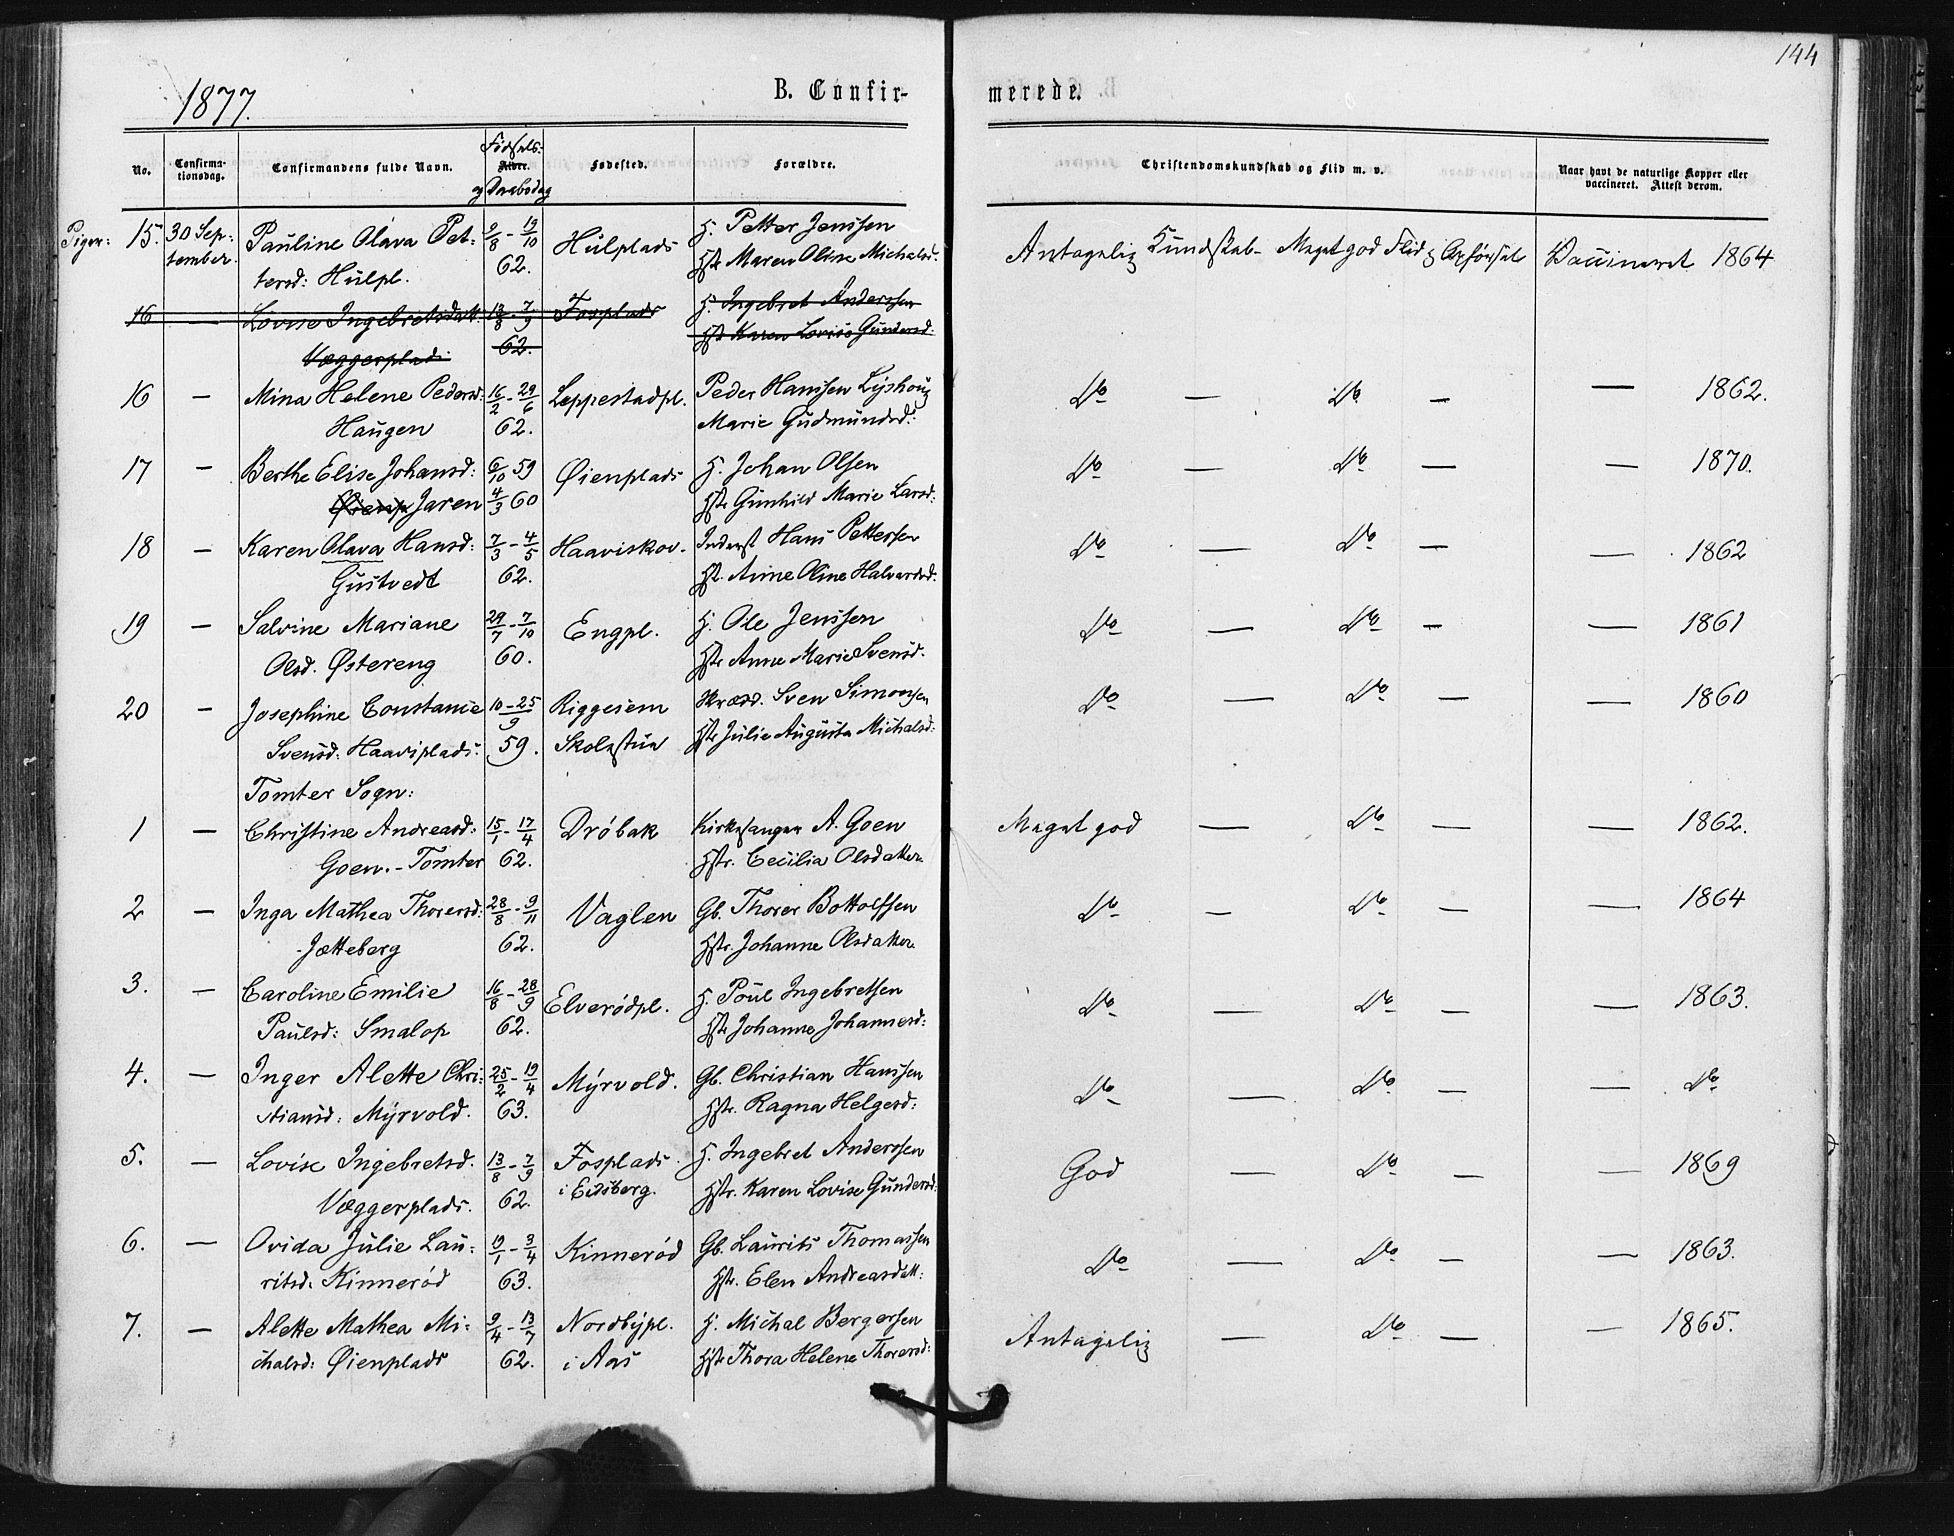 144
1877.
B. Confir-
merede.
No.
Confirma-
tionsdag.
Confirmandens fulde Navn.
Fødsels:
Alder.
og Daabsdag
Fødested.
Forældre.
Christendomskundskab og Flid m. v.
Naar havt de naturlige Kopper eller
vaccineret. Attest derom.
Piger: 15. 30 Sep: Pauline Olava Pet: 9/8 - 19/10 Hulplads H. Petter Jenssen Antagelig Kundskab - Meget god Flid & Opførsel Vaccineret 1864
tember tersd: Hulpl. 62. Hstr Maren Oline Michalsd:
16 — Lovise Ingebretsdatt: 13/8 - 7/9 Fosplads H. Ingebret Anderssen
Væggerplads 62. Hstr Karen Lovise Gundersd:
16 — Mina Helene Pedersd: 16/2 - 29/6 Leppestadpl. Peder Hanssen Lijshoug Do — Do — — 1862.
Haugen 62. Marie Gudmundsd:
17 — Berthe Elise Johansd: 6/10 59 Øienplads H. Johan Olsen Do — Do — — 1870.
Øienp Jaren 4/3 60 Hstr Gunhild Marie Larsd:
18 — Karen Olava Hansd: 7/3 - 4/5 Haaviskov. Inderst Hans Pettersen Do — Do — — 1862
Gustvedt 62. Hst. Anne Oline Halvorsd:
19 — Salvine Mariane 29/7 - 7/10 Engpl. H. Ole Jenssen Do — Do — — 1861
Olsd. Østereng 60. Hstr Anne Marie Svensd:
20 — Josephine Constance 10-25/9 Riggesiem Skrædd. Sven Simonsen Do — Do — — 1860
Svensd: Haaviplads: 59. Skolestua Hstr Julie Augusta Michalsd:
Tomter Sogn:
1 — Christine Andreasd: 15/1 - 17/4 Drøbak Kirkesanger A. Goen Meget god — Do — — 1862.
Goen. - Tomter 62. Hstr. Cecilia Olsdatter
2 — Inga Mathea Thorersd: 28/8 - 9/11 Vaglen Gb. Thorer Bottolfsen Do — Do — — 1864
Jætteberg 62. Hstr. Johanne Olsdatter
3. — Caroline Emilie 16/8 - 28/9 Elverødpl. H. Poul Ingebretsen Do — Do — — 1863.
Paulsd: Smalop 62. Hstr Johanne Johannesd:
4. — Inger Alette Chri: 25/2 - 19/4 Myrvold. Gb. Christian Hanssen Do — Do — — Do
stiansd: Myrvold. 63. Hstr. Ragna Helgesd:
5. — Lovise Ingebretsd. 13/8 - 7/9 Fosplads H. Ingebret Anderssen God — Do — — 1869
Væggerplads. 62. i Eidsberg. Hstr. Karen Lovise Gundersd:
6. — Ovida Julie Lau: 19/1 - 3/4 Kinnerød Gb. Laurits Thomassen Do — Do — — 1863.
ritsd. Kinnerød 63. Hstr. Elen Andreasdatt:
7. — Alette Mathea Mi: 9/4 - 13/7 Nordbypl. H. Michal Bergersen Antagelig — Do — — 1865.
chalsd: Øienplads 62. i Aas Hstr Thora Helene Thorersd: